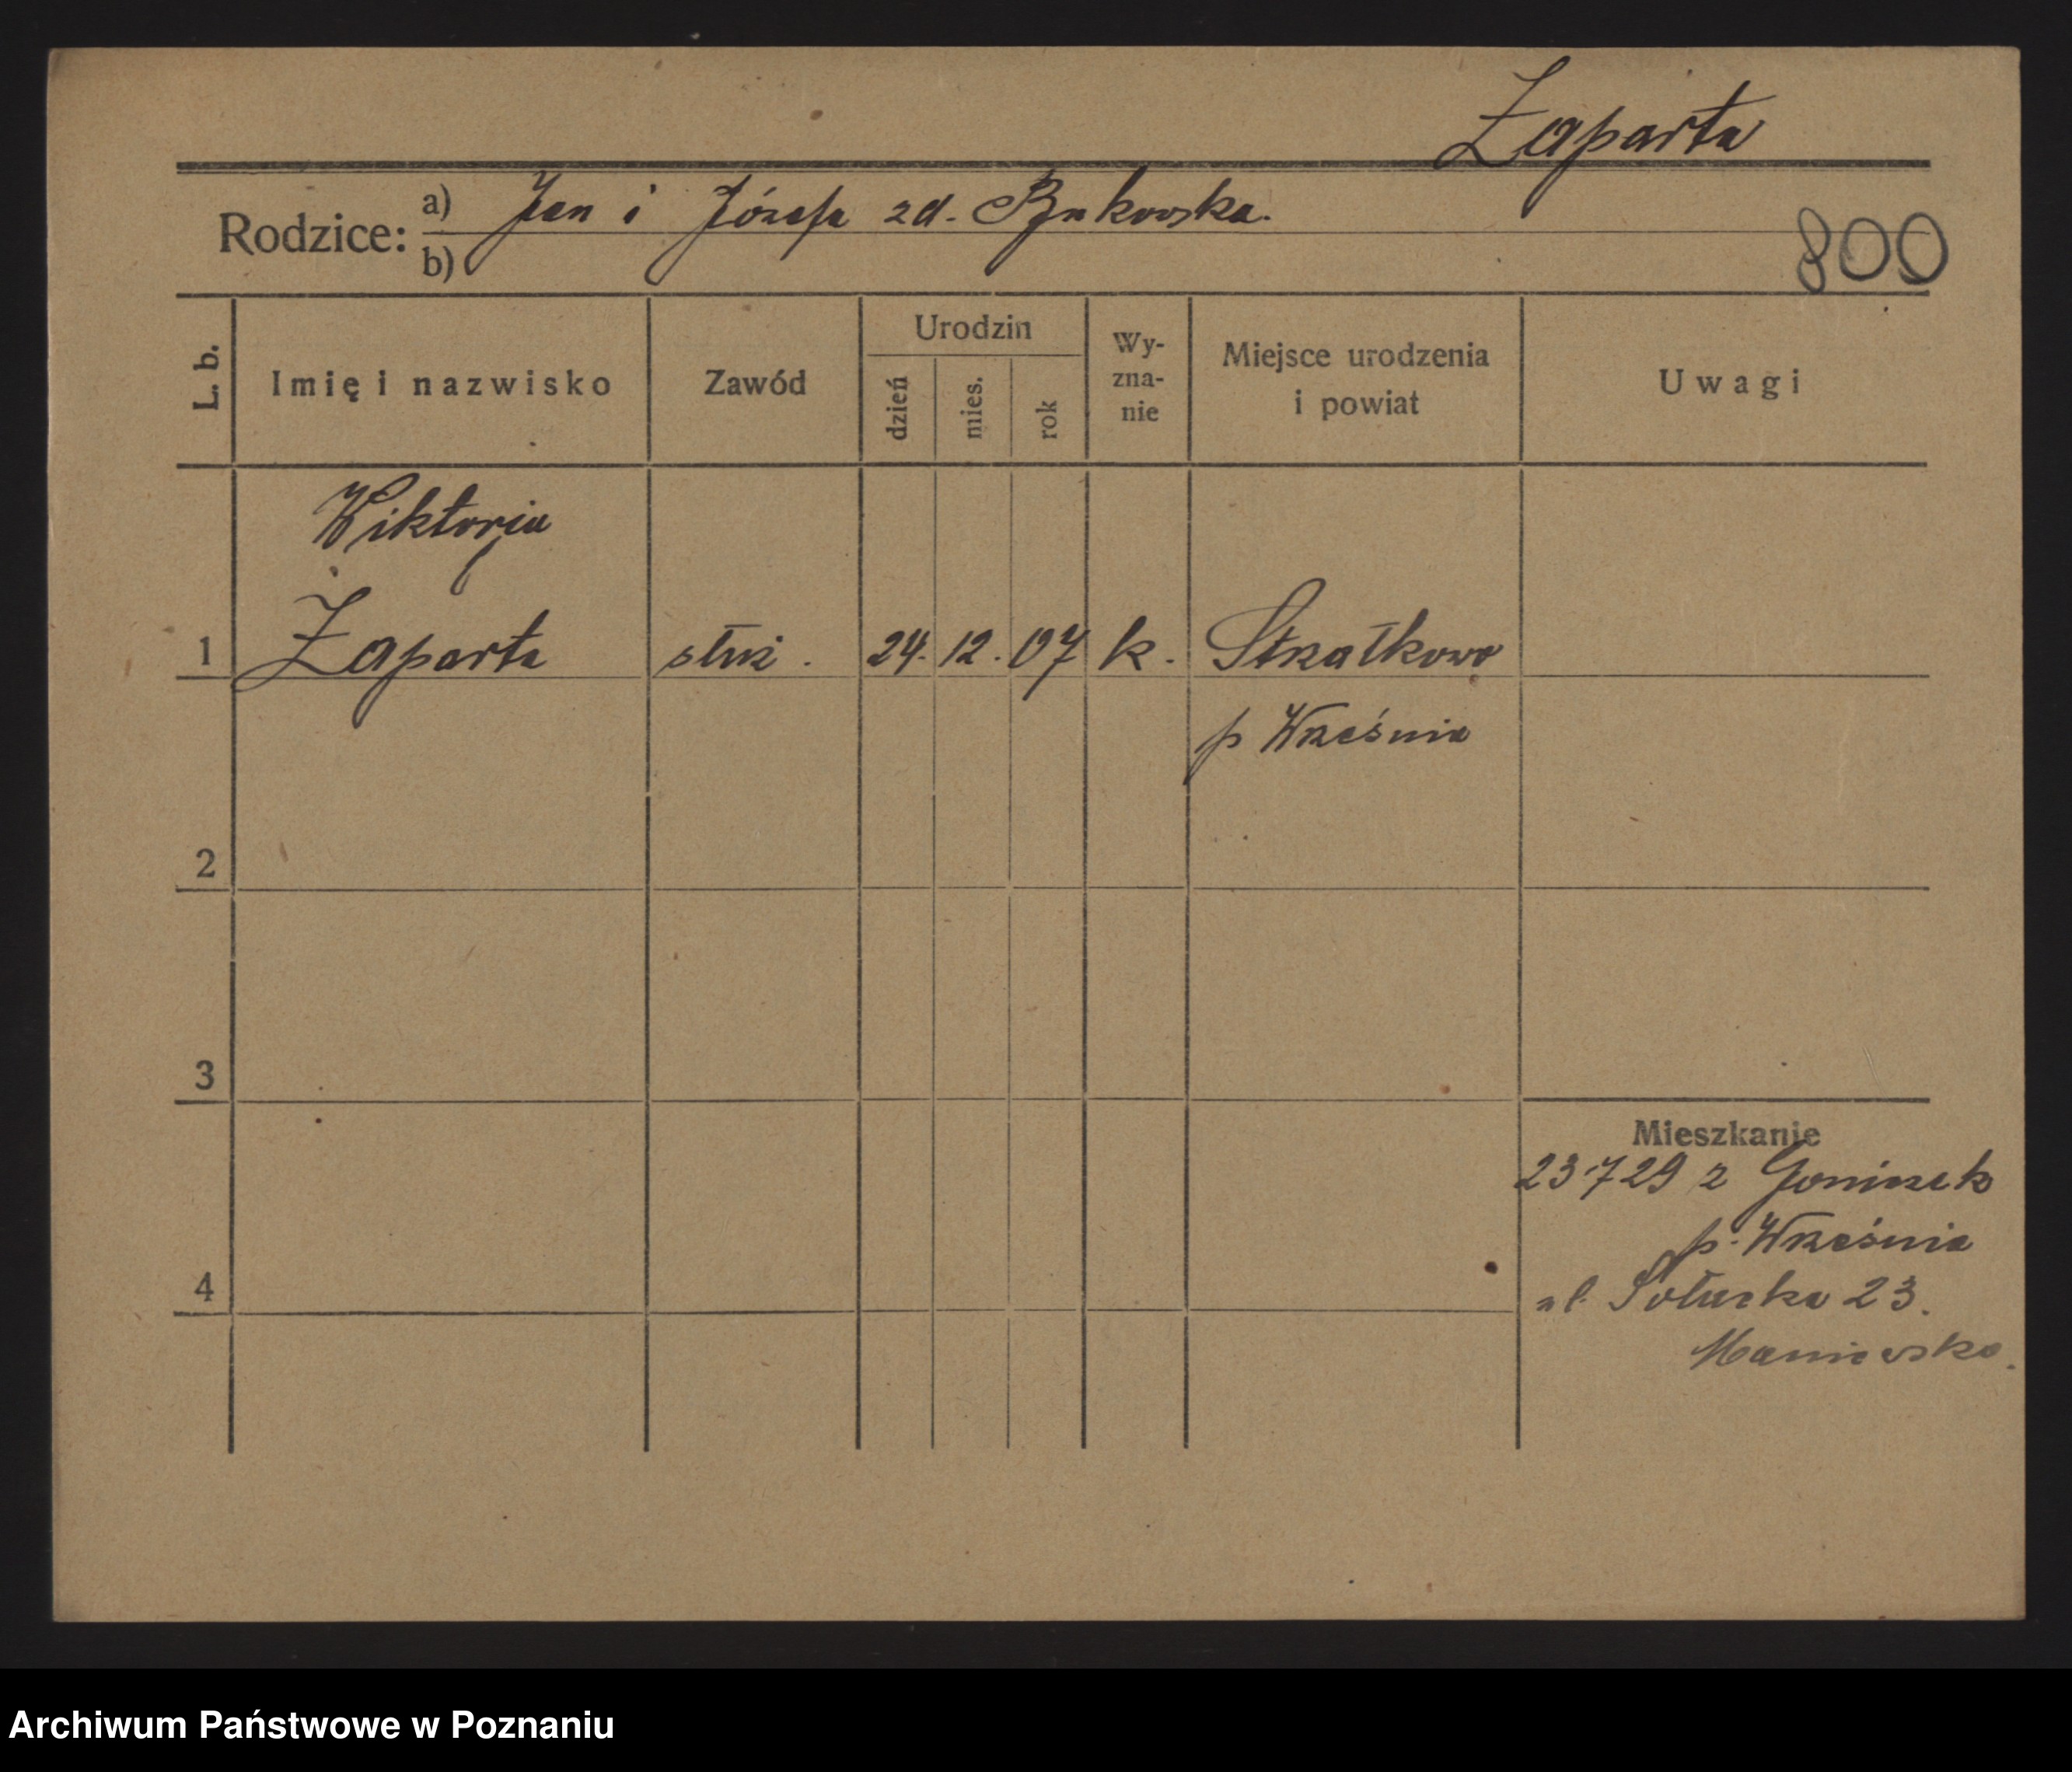 Zaparta
Rodzice: a) Jan i Józefa zd. Bykowska.
b)
800
L. b.
Imię i nazwisko
Zawód
Urodzin
dzień
mies.
rok
Wy-
zna-
nie
Miejsce urodzenia
i powiat
Uwagi
Wiktorja
1 Zaparta służ. 24. 12. 07 k. Strzałkowo
p Września
2
3
Mieszkanie
23 7 29 z Goniczek
p. Września
4
ul. Sołacka 23.
Archiwum Państwowe w Poznaniu